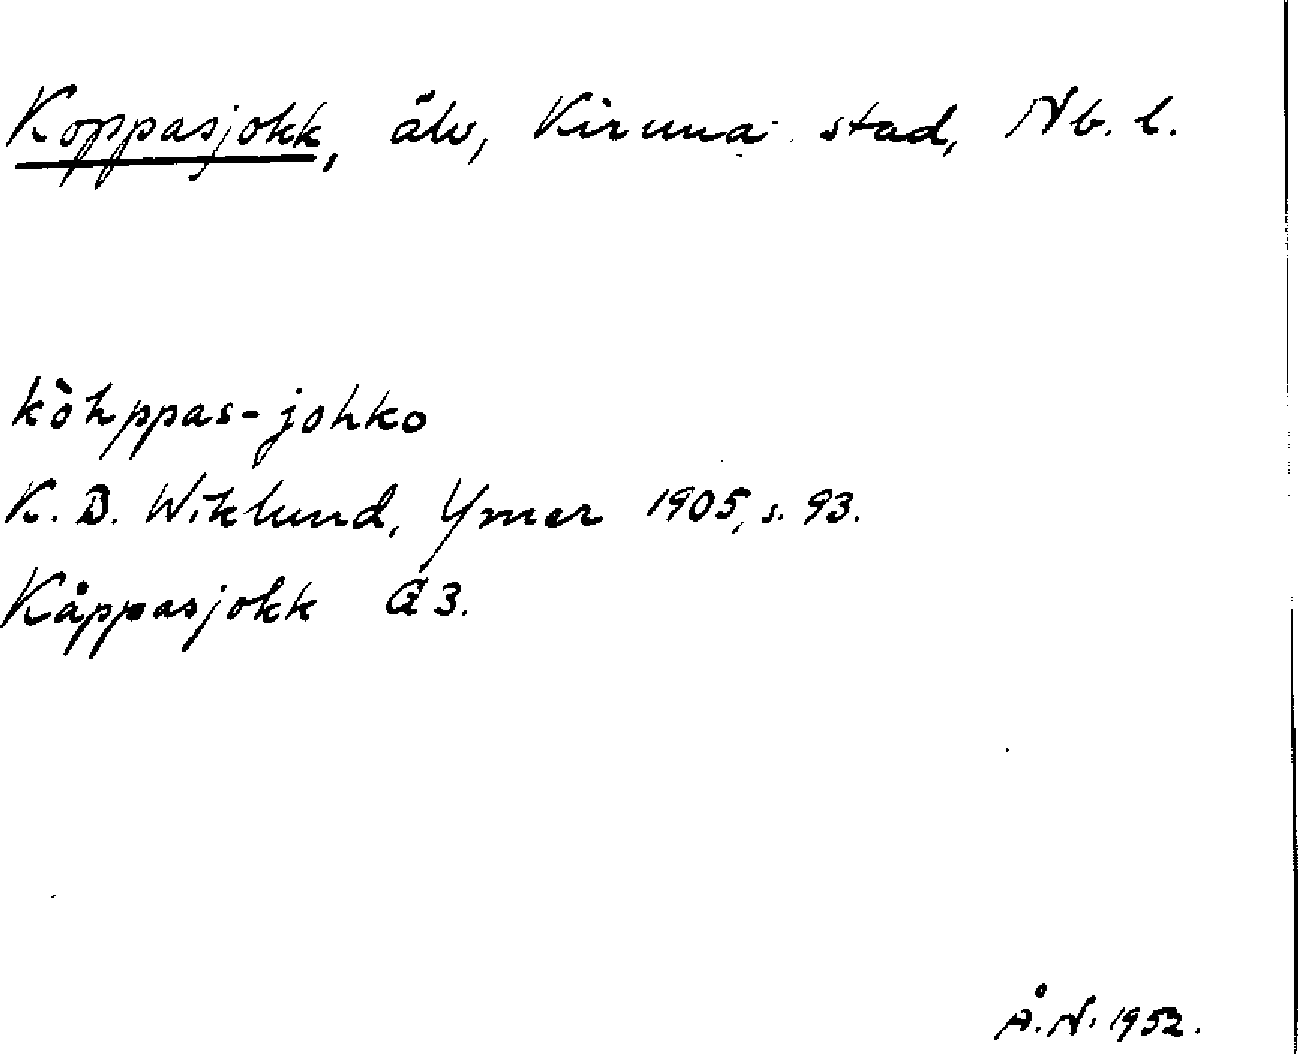 Koppasjokk, älv, Kiruna stad, Nb. l.
kòhppas-johko
K. B. Wiklund, Ymer 1905, s. 93.
Kåppasjokk G3.
Å.N. 1952.